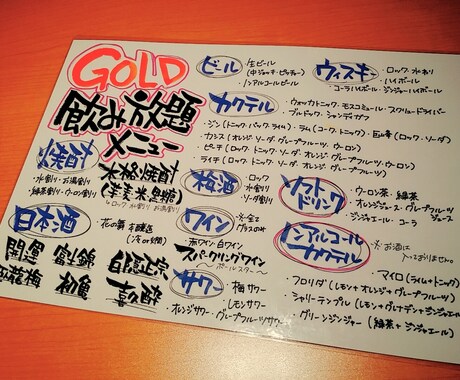 GOLD
飲み放題
メニュー
焼酎
・水割り・お湯割り
・緑茶割り・ウーロン割り
本格焼酎
(芋麦米黒糖)
↳ロック 水割り お湯割り
日本酒
・花の舞 本醸造
(冷or燗)
開運 富士錦 白隠正宗
臥龍梅 初亀 喜酔
ビール
・生ビール
(中ジョッキ・ピッチャー)
・ノンアルコールビール
ウィスキー
・ロック・水わり
・ハイボール
・コーラハイボール・ジンジャーハイボール
カクテル
・ウォッカトニック・モスコミュール・スクリュードライバー
・ブルドック・シャンディガフ
・ジン(トニック・バック・ライム)・ラム(コーク・トニック)・巨峰(ロック・ソーダ)
・カシス(オレンジ・ソーダ・グレープフルーツ・ウーロン)
・ピーチ(ロック・トニック・ソーダ・オレンジ・グレープフルーツ・ウーロン)
・ライチ(ロック・トニック・ソーダ・オレンジ・グレープフルーツ)
梅酒
・ロック
・水割り
・ソーダ割り
ワイン
※全て
グラスのみ
・赤ワイン 白ワイン
・スパークリングワイン
～ポールスター～
サワー
・梅サワー
・レモンサワー
・オレンジサワー・グレープフルーツサワー
ソフト
ドリンク
・ウーロン茶・緑茶
・オレンジジュース・グレープフルーツジュース
・ジンジャエール・コーラ
ノンアルコール
カクテル
※お酒は
入っておりません。
・マイロ(ライム+トニック)
・フロリダ(レモン+オレンジ+グレープフルーツ)
・シャリーテンプル(レモン+グレナデン+ジンジャエール)
・グリーンジンジャー(緑茶+ジンジャエール)